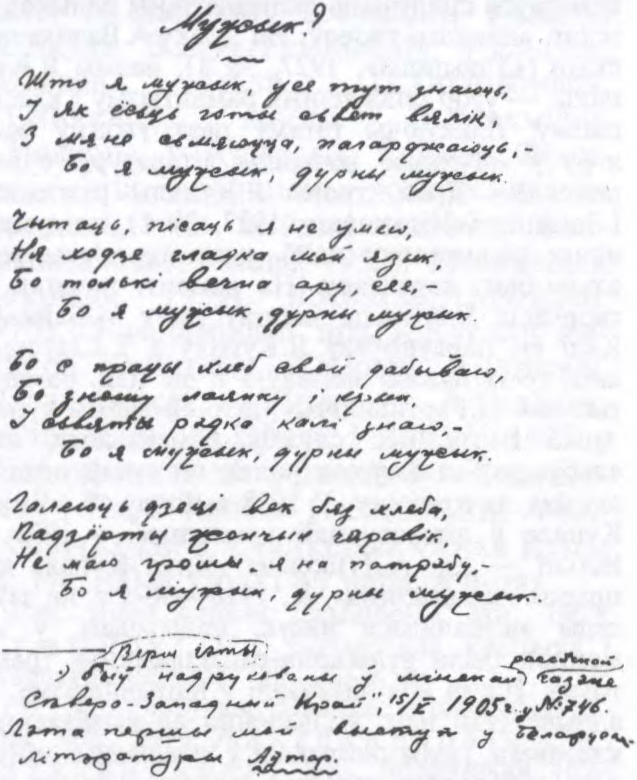 Мужык.
Што я мужык, усе тут знаюць,
І як ёсць гэты свет вялік,
З мяне смяюцца, пагарджаюць,-
Бо я мужык, дурны мужык.
Чытаць, пісаць я не умею,
Ня ходзе гладка мой язык,
Бо толькі вечна ару, сею,-
Бо я мужык, дурны мужык.
Бо с працы хлеб свой дабываю,
Бо зношу лаянку і крык,
І сьвяты рэдка калі знаю,-
Бо я мужык, дурны мужык.
Галеюць дзеці век без хлеба,
Падзёрты жончын чаравік,
Не маю грошы я на патрэбу,-
Бо я мужык, дурны мужык.
Верш гэты
быў надрукованы у мінскай рускай газэце
"Северо-Западный Край", 15/V 1905 г. № 746.
Гэта першы мой выступ у беларускай
літэратуры Аўтар.